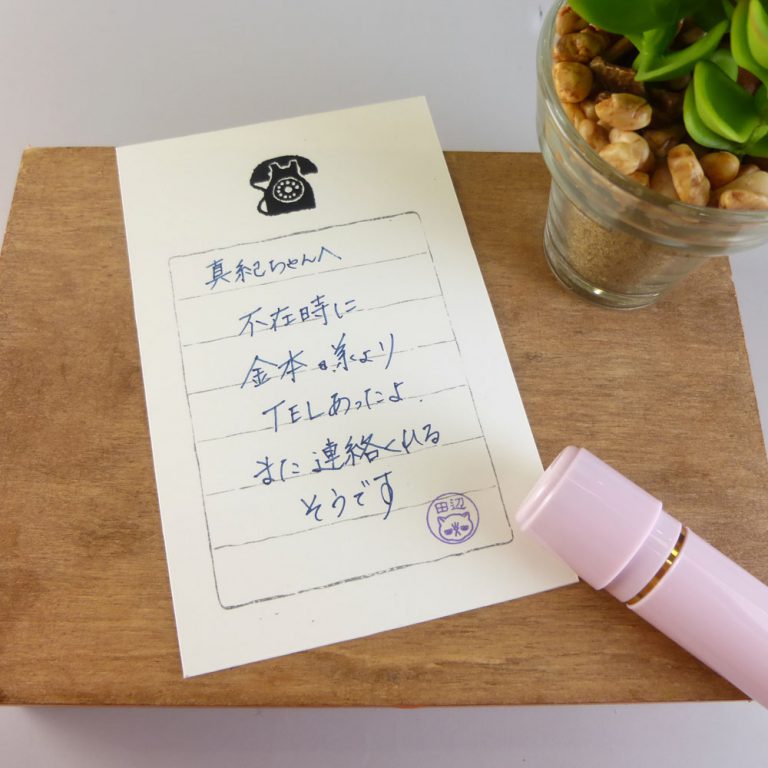 真紀ちゃんへ
不在時に
金本様より
TELあったよ.
また連絡くれる
そうです
田辺